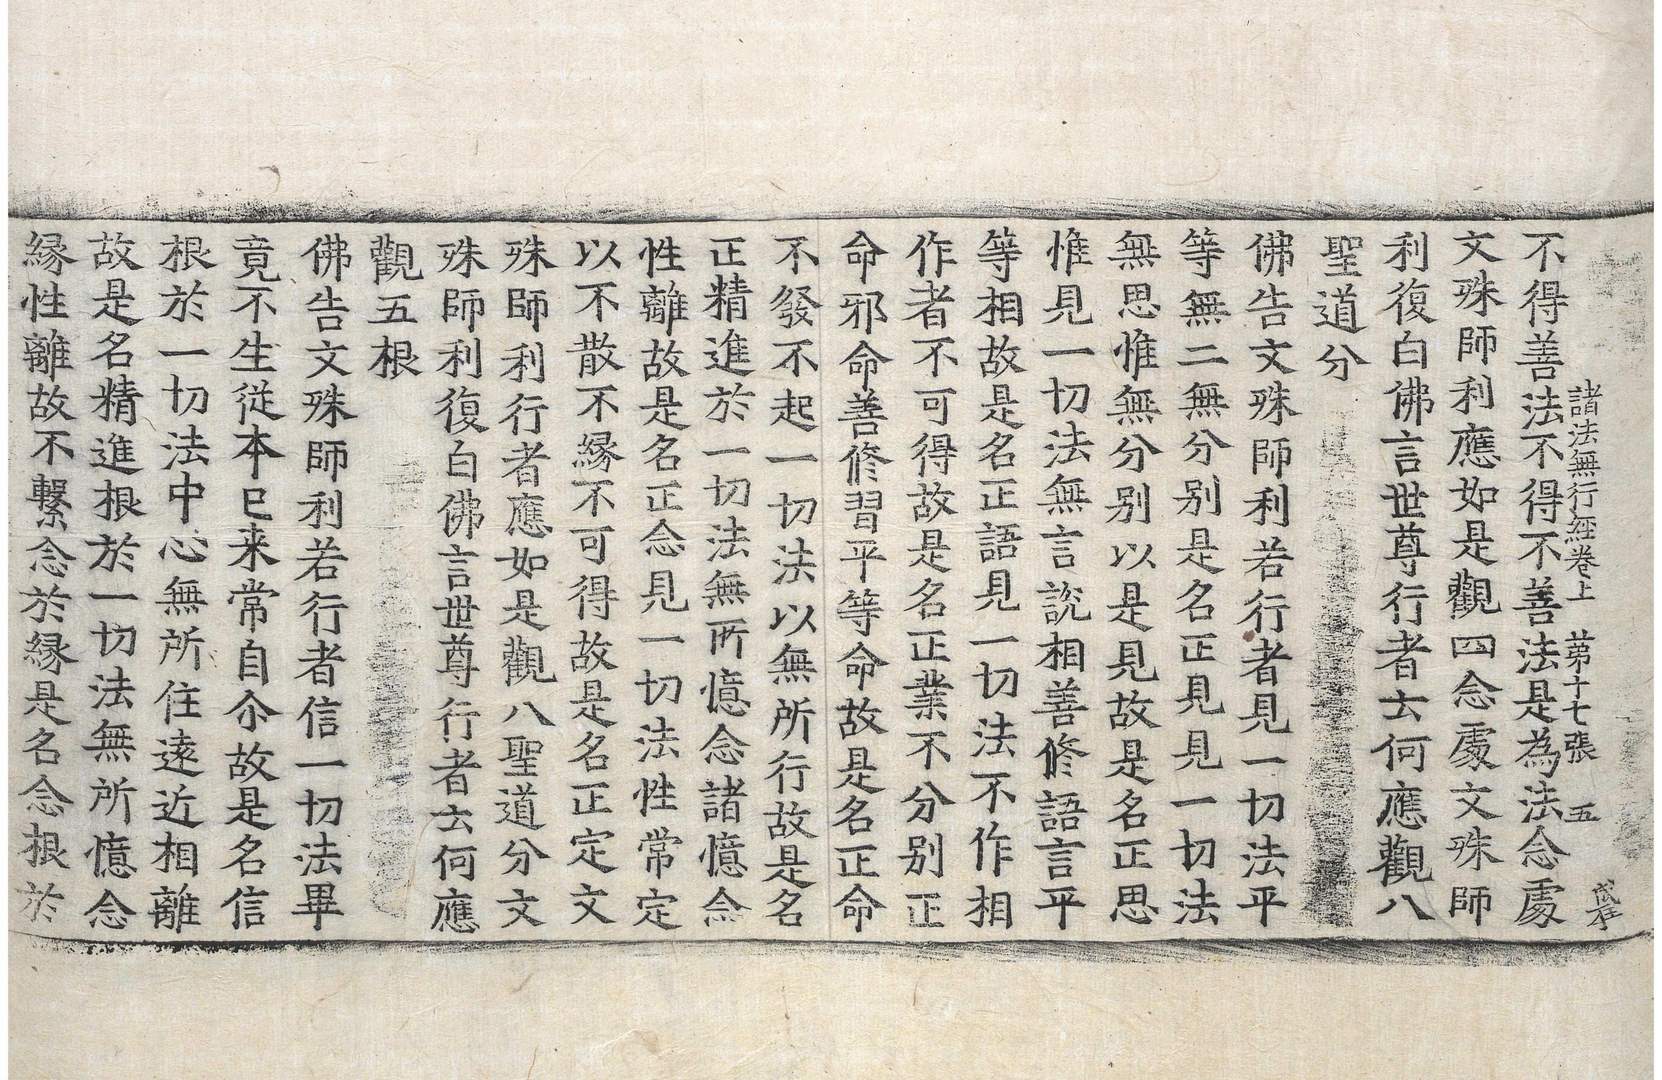 諸法無行經卷上 苐十七張 五
不得善法不得不善法是為法念處
文殊師利應如是觀四念處文殊師
利復白佛言世尊行者云何應觀八
聖道分
佛告文殊師利若行者見一切法平
等無二無分別是名正見見一切法
無思惟無分別以是見故是名正思
惟見一切法無言説相善修語言平
等相故是名正語見一切法不作相
作者不可得故是名正業不分別正
命邪命善修習平等命故是名正命
不發不起一切法以無所行故是名
正精進於一切法無所憶念諸憶念
性離故是名正念見一切法性常定
以不散不緣不可得故是名正定文
殊師利行者應如是觀八聖道分文
殊師利復白佛言世尊行者云何應
觀五根
佛告文殊師利若行者信一切法畢
竟不生從本已来常自尒故是名信
根於一切法中心無所住遠近相離
故是名精進根於一切法無所憶念
緣性離故不繫念於緣是名念根於